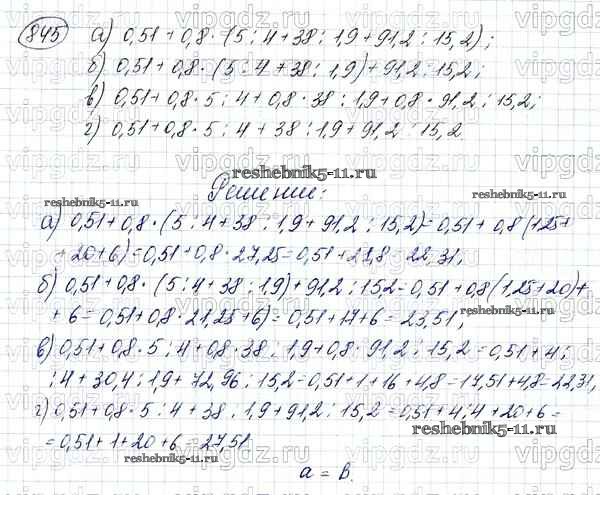 845 а) 0,51 + 0,8 · (5 : 4 + 38 : 1,9 + 91,2 : 15,2) ;
б) 0,51 + 0,8 · (5 : 4 + 38 : 1,9) + 91,2 : 15,2 ;
в) 0,51 + 0,8 · 5 : 4 + 0,8 · 38 : 1,9 + 0,8 · 91,2 : 15,2 ;
г) 0,51 + 0,8 · 5 : 4 + 38 : 1,9 + 91,2 : 15,2
reshebnik5-11.ru
Решение:
reshebnik5-11.ru reshebnik5-11.ru
а) 0,51 + 0,8 · (5 : 4 + 38 : 1,9 + 91,2 : 15,2) = 0,51 + 0,8 (1,25 +
+ 20 + 6) = 0,51 + 0,8 · 27,25 = 0,51 + 21,8 = 22,31 ;
б) 0,51 + 0,8 · (5 : 4 + 38 : 1,9) + 91,2 : 15,2 = 0,51 + 0,8 (1,25 + 20) +
+ 6 = 0,51 + 0,8 · 21,25 + 6) = 0,51 + 17 + 6 = 23,51 ;
в) 0,51 + 0,8 · 5 : 4 + 0,8 · 38 : 1,9 + 0,8 · 91,2 : 15,2 = 0,51 + 4 :
: 4 + 30,4 : 1,9 + 72,96 : 15,2 = 0,51 + 1 + 16 + 4,8 = 17,51 + 4,8 = 22,31,
г) 0,51 + 0,8 · 5 : 4 + 38 : 1,9 + 91,2 : 15,2 = 0,51 + 4 : 4 + 20 + 6 =
= 0,51 + 1 + 20 + 6 = 27,51
reshebnik5-11.ru
reshebnik5-11.ru
а = в.
vipgdz.ru